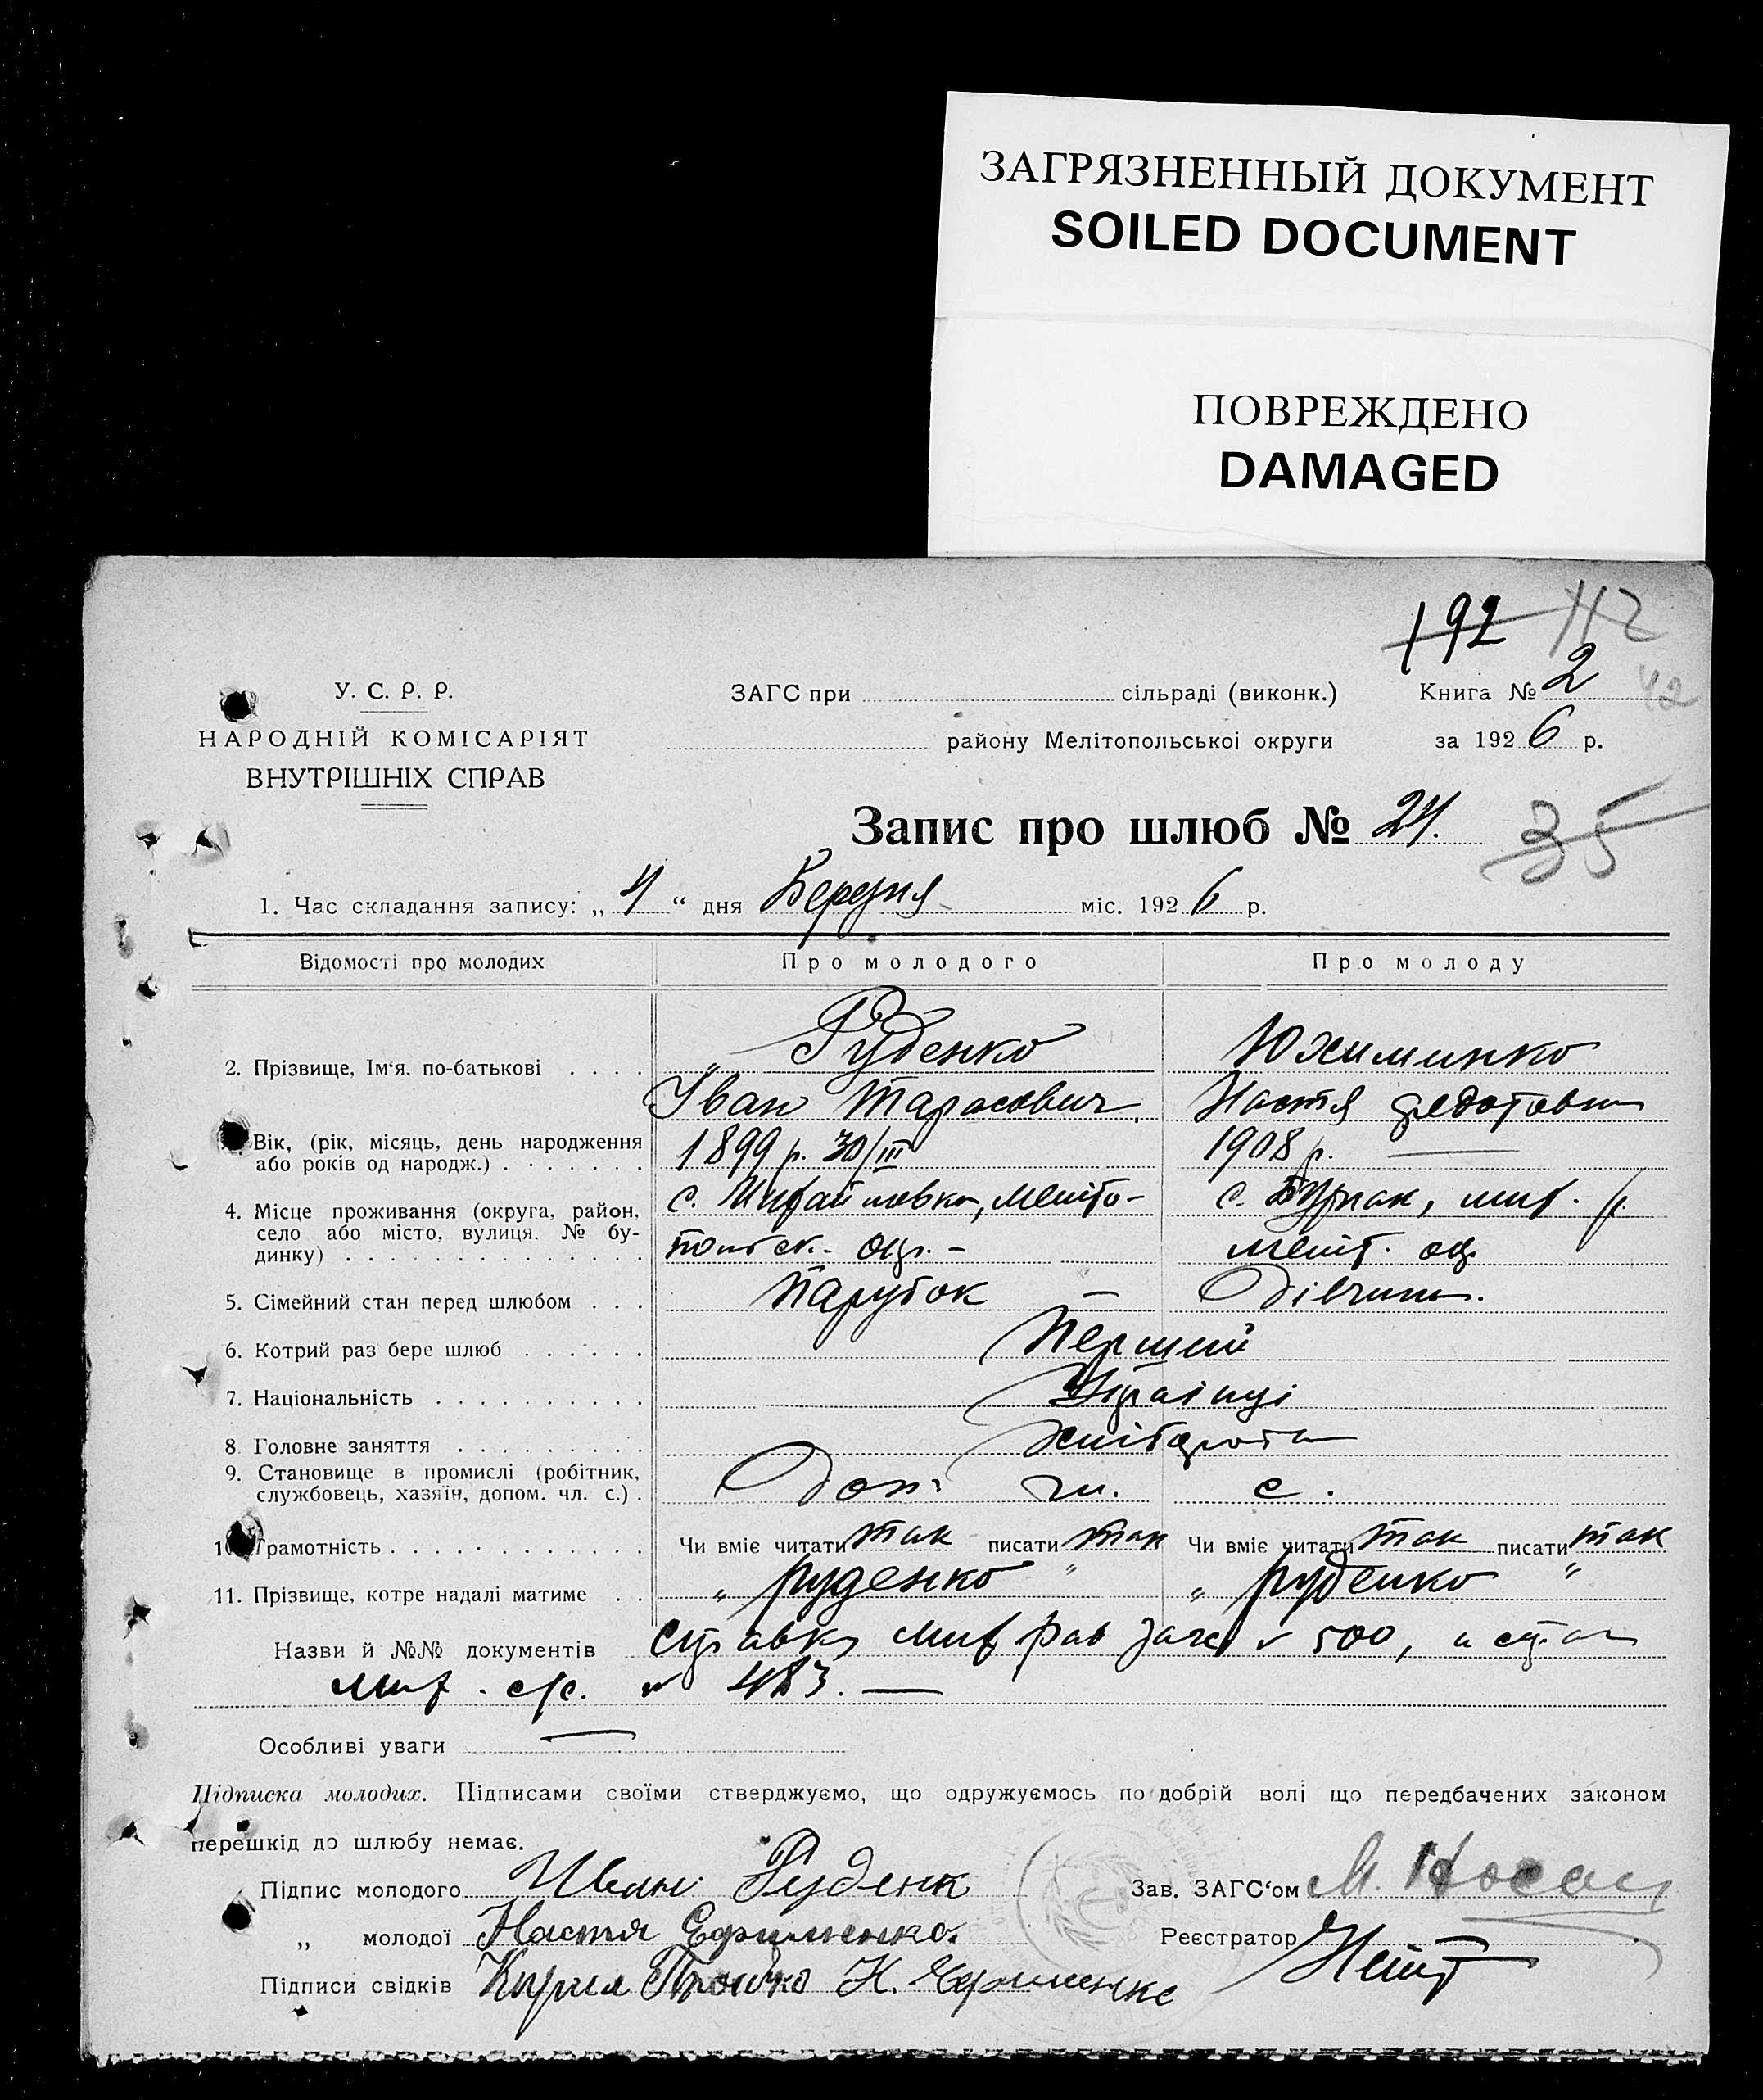 ЗАГРЯЗНЕННЫЙ ДОКУМЕНТ
SOILED DOCUMENT
ПОВРЕЖДЕНО
DAMAGED
192 112
У. С. Р. Р.
НАРОДНІЙ КОМІСАРІЯТ
ВНУТРІШНІХ СПРАВ
ЗАГС при сільраді (виконк.) Книга № 2 42
району Мелітопольської округи за 1926 р.
Запис про шлюб № 24. 35
1. Час складання запису: „4“ дня Березня міс. 1926 р.
Відомості про молодих Про молодого Про молоду
2. Прізвище, Ім‘я. по-батькові Руденко Юхиминко
Іван Тарасович Настя Федотовна
Вік, (рік, місяць, день народження або років од народж.) 1899 р. 30/III 1908 р. —
4. Місце проживання (округа, район, село або місто, вулиця. № будинку) с. Михайловка, Меліто-
польск. окр. – мелит. ок.
5. Сімейний стан перед шлюбом Парубок — Дівчина.
6. Котрий раз бере шлюб Перший
7. Національність Українці
8. Головне заняття Хлібороби
9. Становище в промислі (робітник, службовець, хазяїн, допом. чл. с.) Доп. чл. с.
10. Грамотність Чи вміє читати так писати так Чи вміє читати так писати так
11. Прізвище, котре надалі матиме „ Руденко “ „ Руденко “
Назви й №№ документів 500,
с/с. № 483. —
Особливі уваги —
Підписка молодих. Підписами своїми стверджуємо, що одружуємось по добрій волі що передбачених законом
перешкід до шлюбу немає.
Підпис молодого Иван Руденк Зав. ЗАГС‘ом М.
„ молодої Настя Ефименко. Реєстратор
Підписи свідків Кирил Н. Ефименко